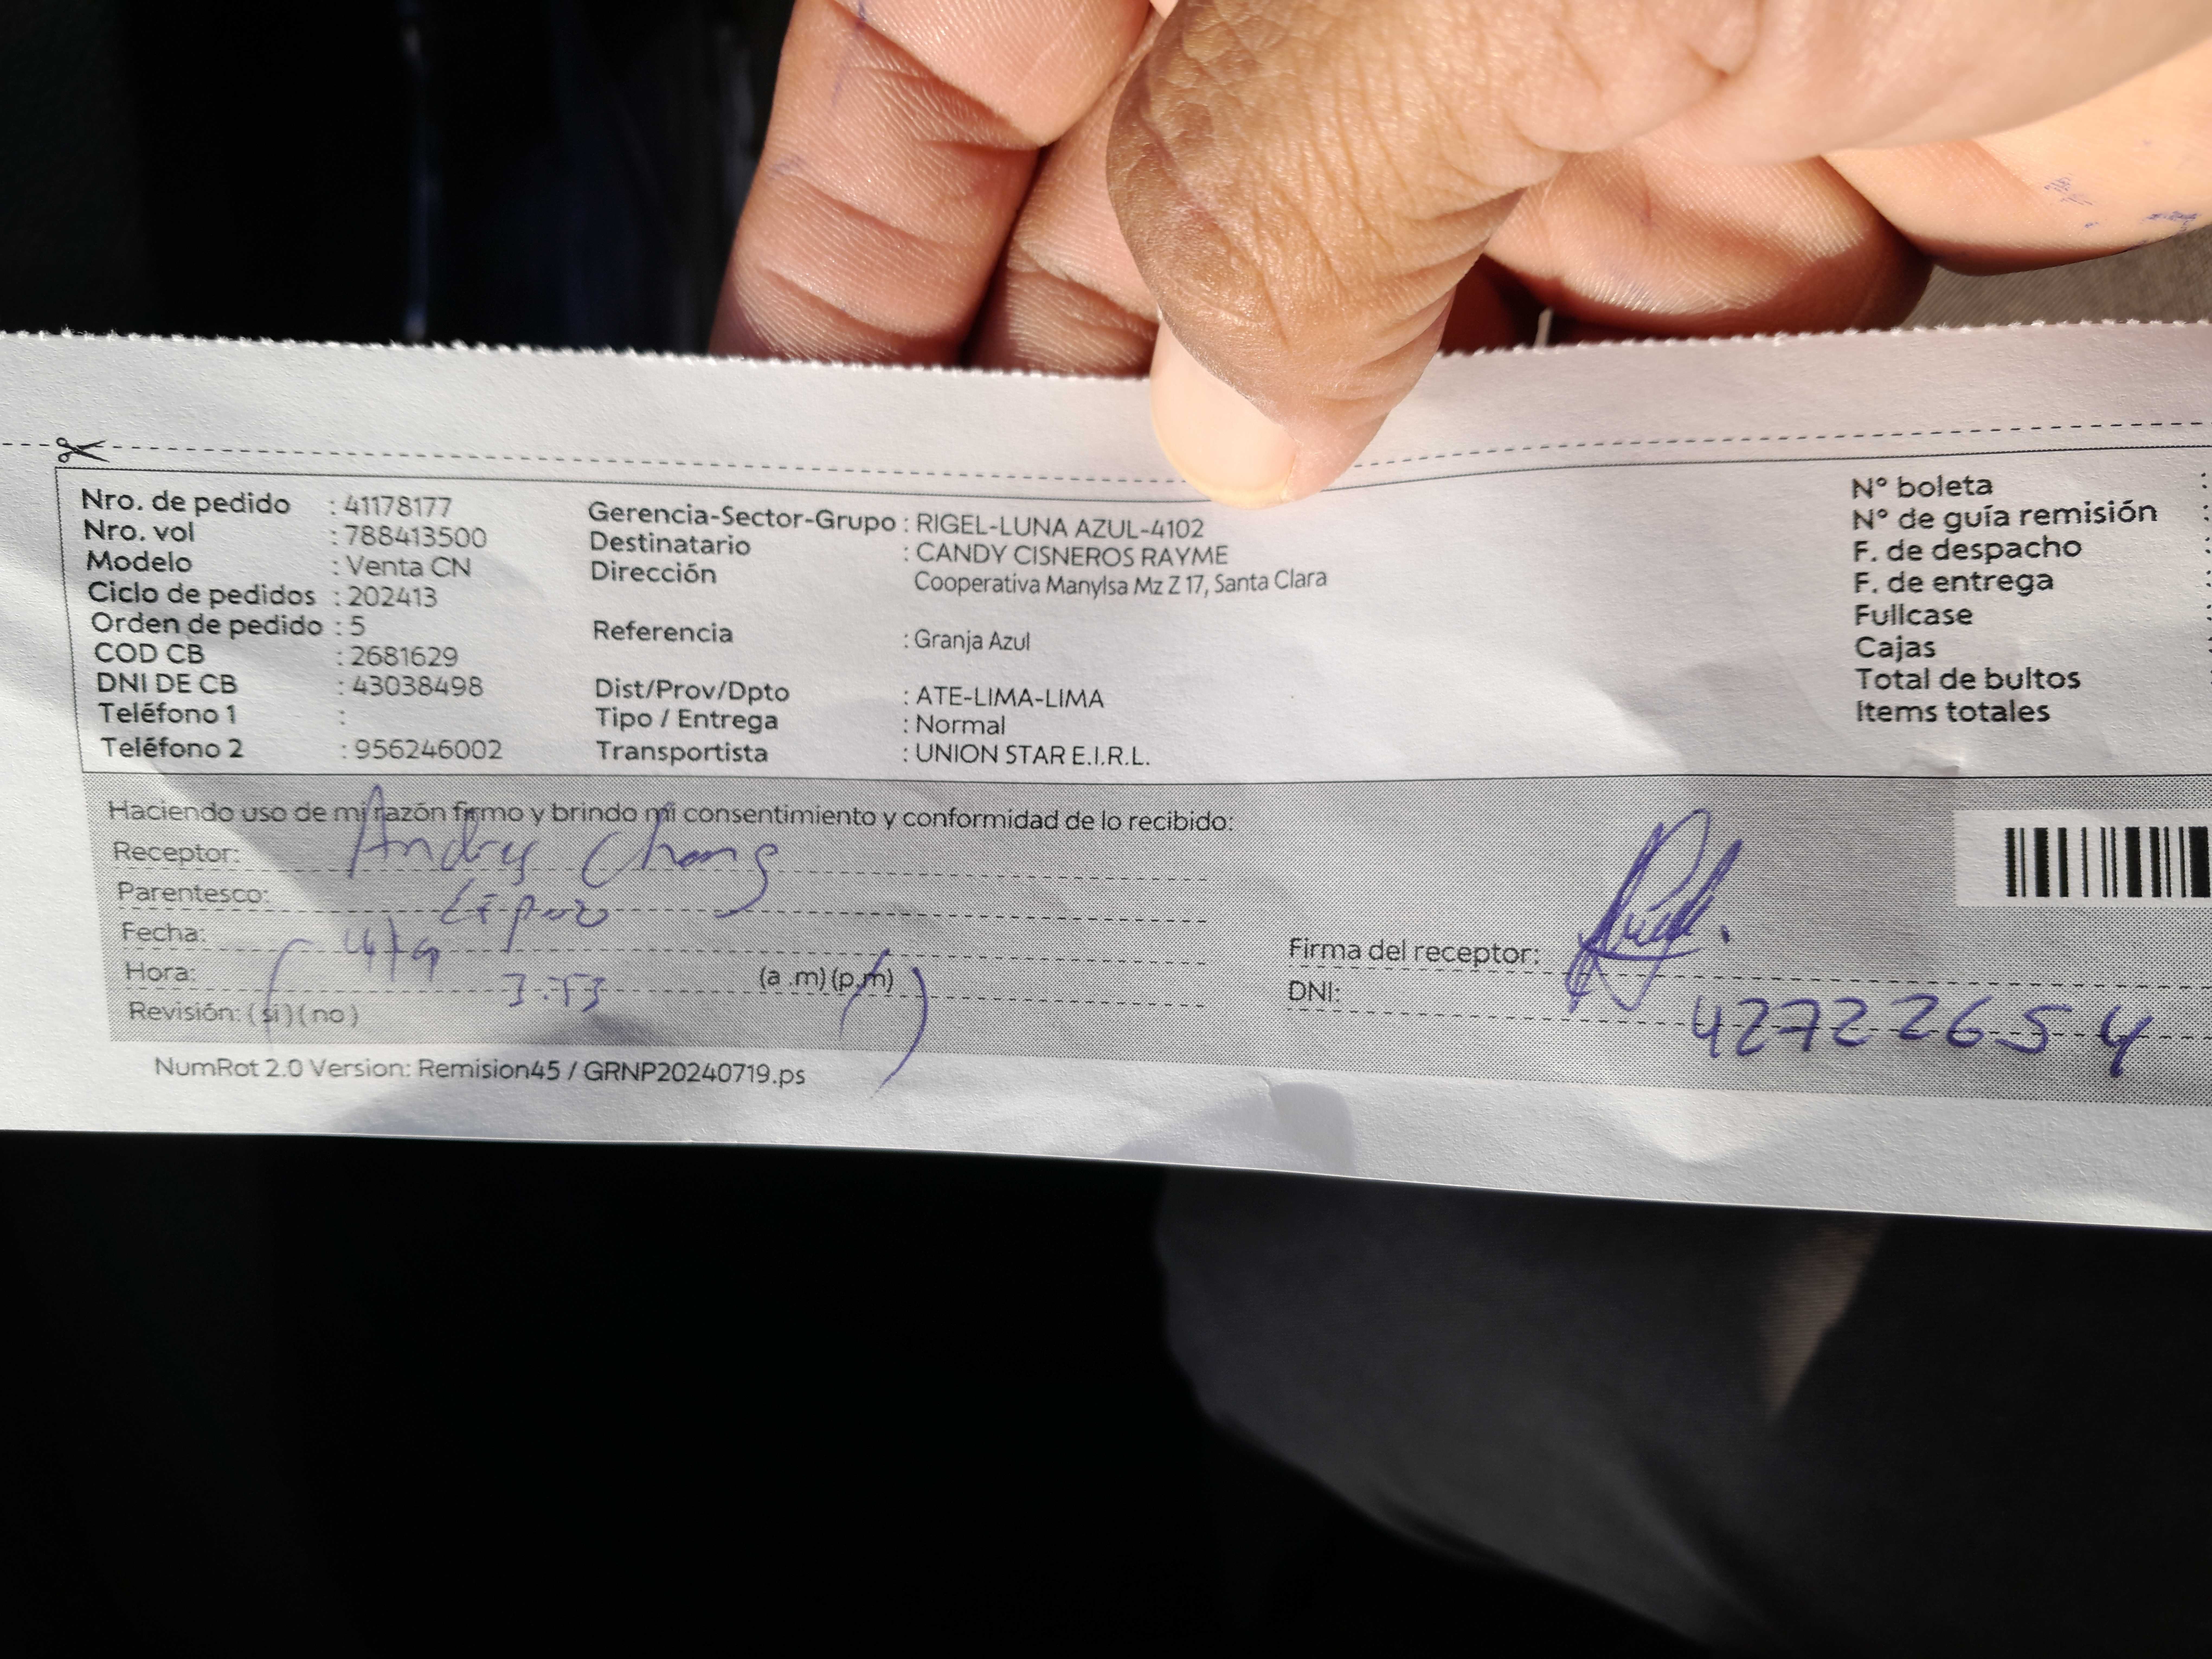 Nro. de pedido : 41178177
Nro. vol : 788413500
Modelo : Venta CN
Ciclo de pedidos : 202413
Orden de pedido : 5
COD CB : 2681629
DNI DE CB : 43038498
Teléfono 1 :
Teléfono 2 : 956246002
Gerencia-Sector-Grupo : RIGEL-LUNA AZUL-4102
Destinatario : CANDY CISNEROS RAYME
Dirección Cooperativa Manylsa Mz Z 17, Santa Clara
Referencia : Granja Azul
Dist/Prov/Dpto : ATE-LIMA-LIMA
Tipo / Entrega : Normal
Transportista : UNION STAR E.I.R.L.
N° boleta :
N° de guía remisión :
F. de despacho :
F. de entrega :
Fullcase :
Cajas :
Total de bultos :
Items totales :
Haciendo uso de mi razón firmo y brindo mi consentimiento y conformidad de lo recibido:
Receptor: Andres Chang
Parentesco: Esposo
Fecha: 4/9
Hora: 3:53 (a .m)(p.m)
Revisión: (si)(no)
Firma del receptor:
DNI: 42722654
NumRot 2.0 Version: Remision45 / GRNP20240719.ps